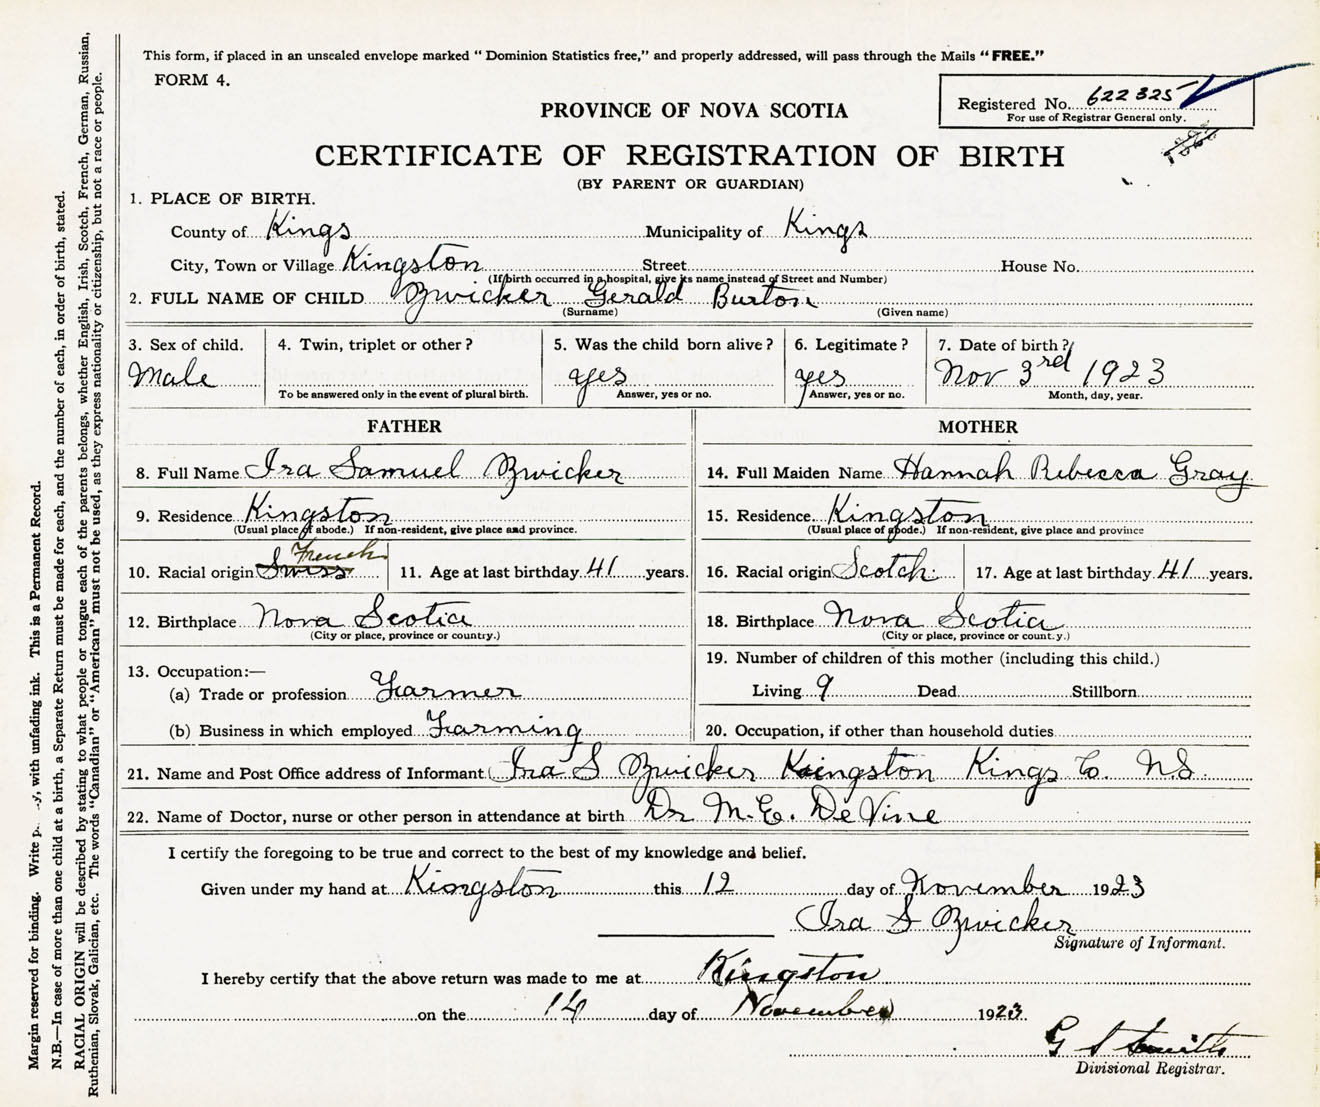 This form, if placed in an unsealed envelope marked " Dominion Statistics free," and properly addressed, will pass through the Mails "FREE."
FORM 4.
Registered No. 622325
For use of Registrar General only.
PROVINCE OF NOVA SCOTIA
CERTIFICATE OF REGISTRATION OF BIRTH
(BY PARENT OR GUARDIAN)
1. PLACE OF BIRTH.
County of Kings Municipality of Kings
City, Town or Village Kingston Street House No.
(If birth occurred in a hospital, give its name instead of Street and Number)
2. FULL NAME OF CHILD Zwicker Gerald Burton
(Surname) (Given name)
3. Sex of child. 4. Twin, triplet or other? 5. Was the child born alive? 6. Legitimate? 7. Date of birth?
Male yes yes Nov 3rd 1923
To be answered only in the event of plural birth. Answer, yes or no. Answer, yes or no. Month, day, year.
FATHER MOTHER
8. Full Name Ira Samuel Zwicker 14. Full Maiden Name Hannah Rebecca Gray
9. Residence Kingston 15. Residence Kingston
(Usual place of abode.) If non-resident, give place and province. (Usual place of abode.) If non-resident, give place and province
French
10. Racial origin Swiss 11. Age at last birthday 41 years. 16. Racial origin Scotch 17. Age at last birthday 41 years.
12. Birthplace Nova Scotia 18. Birthplace Nova Scotia
(City or place, province or country.) (City or place, province or count.y.)
13. Occupation:— 19. Number of children of this mother (including this child.)
(a) Trade or profession Farmer Living 9 Dead Stillborn
(b) Business in which employed Farming 20. Occupation, if other than household duties
21. Name and Post Office address of Informant Ira S Zwicker Kingston Kings Co. N.S.
22. Name of Doctor, nurse or other person in attendance at birth Dr M. E. DeVine
I certify the foregoing to be true and correct to the best of my knowledge and belief.
Given under my hand at Kingston this 12 day of November 1923
Ira S Zwicker
Signature of Informant.
I hereby certify that the above return was made to me at Kingston
on the 14 day of November 1923
G S Smith
Divisional Registrar.
Margin reserved for binding. Write p. .y, with unfading ink. This is a Permanent Record.
N.B.—In case of more than one child at a birth, a Separate Return must be made for each, and the number of each, in order of birth, stated.
RACIAL ORIGIN will be described by stating to what people or tongue each of the parents belongs, whether English, Irish, Scotch, French, German, Russian,
Ruthenian, Slovak, Galician, etc. The words "Canadian" or "American" must not be used, as they express nationality or citizenship, but not a race or people.